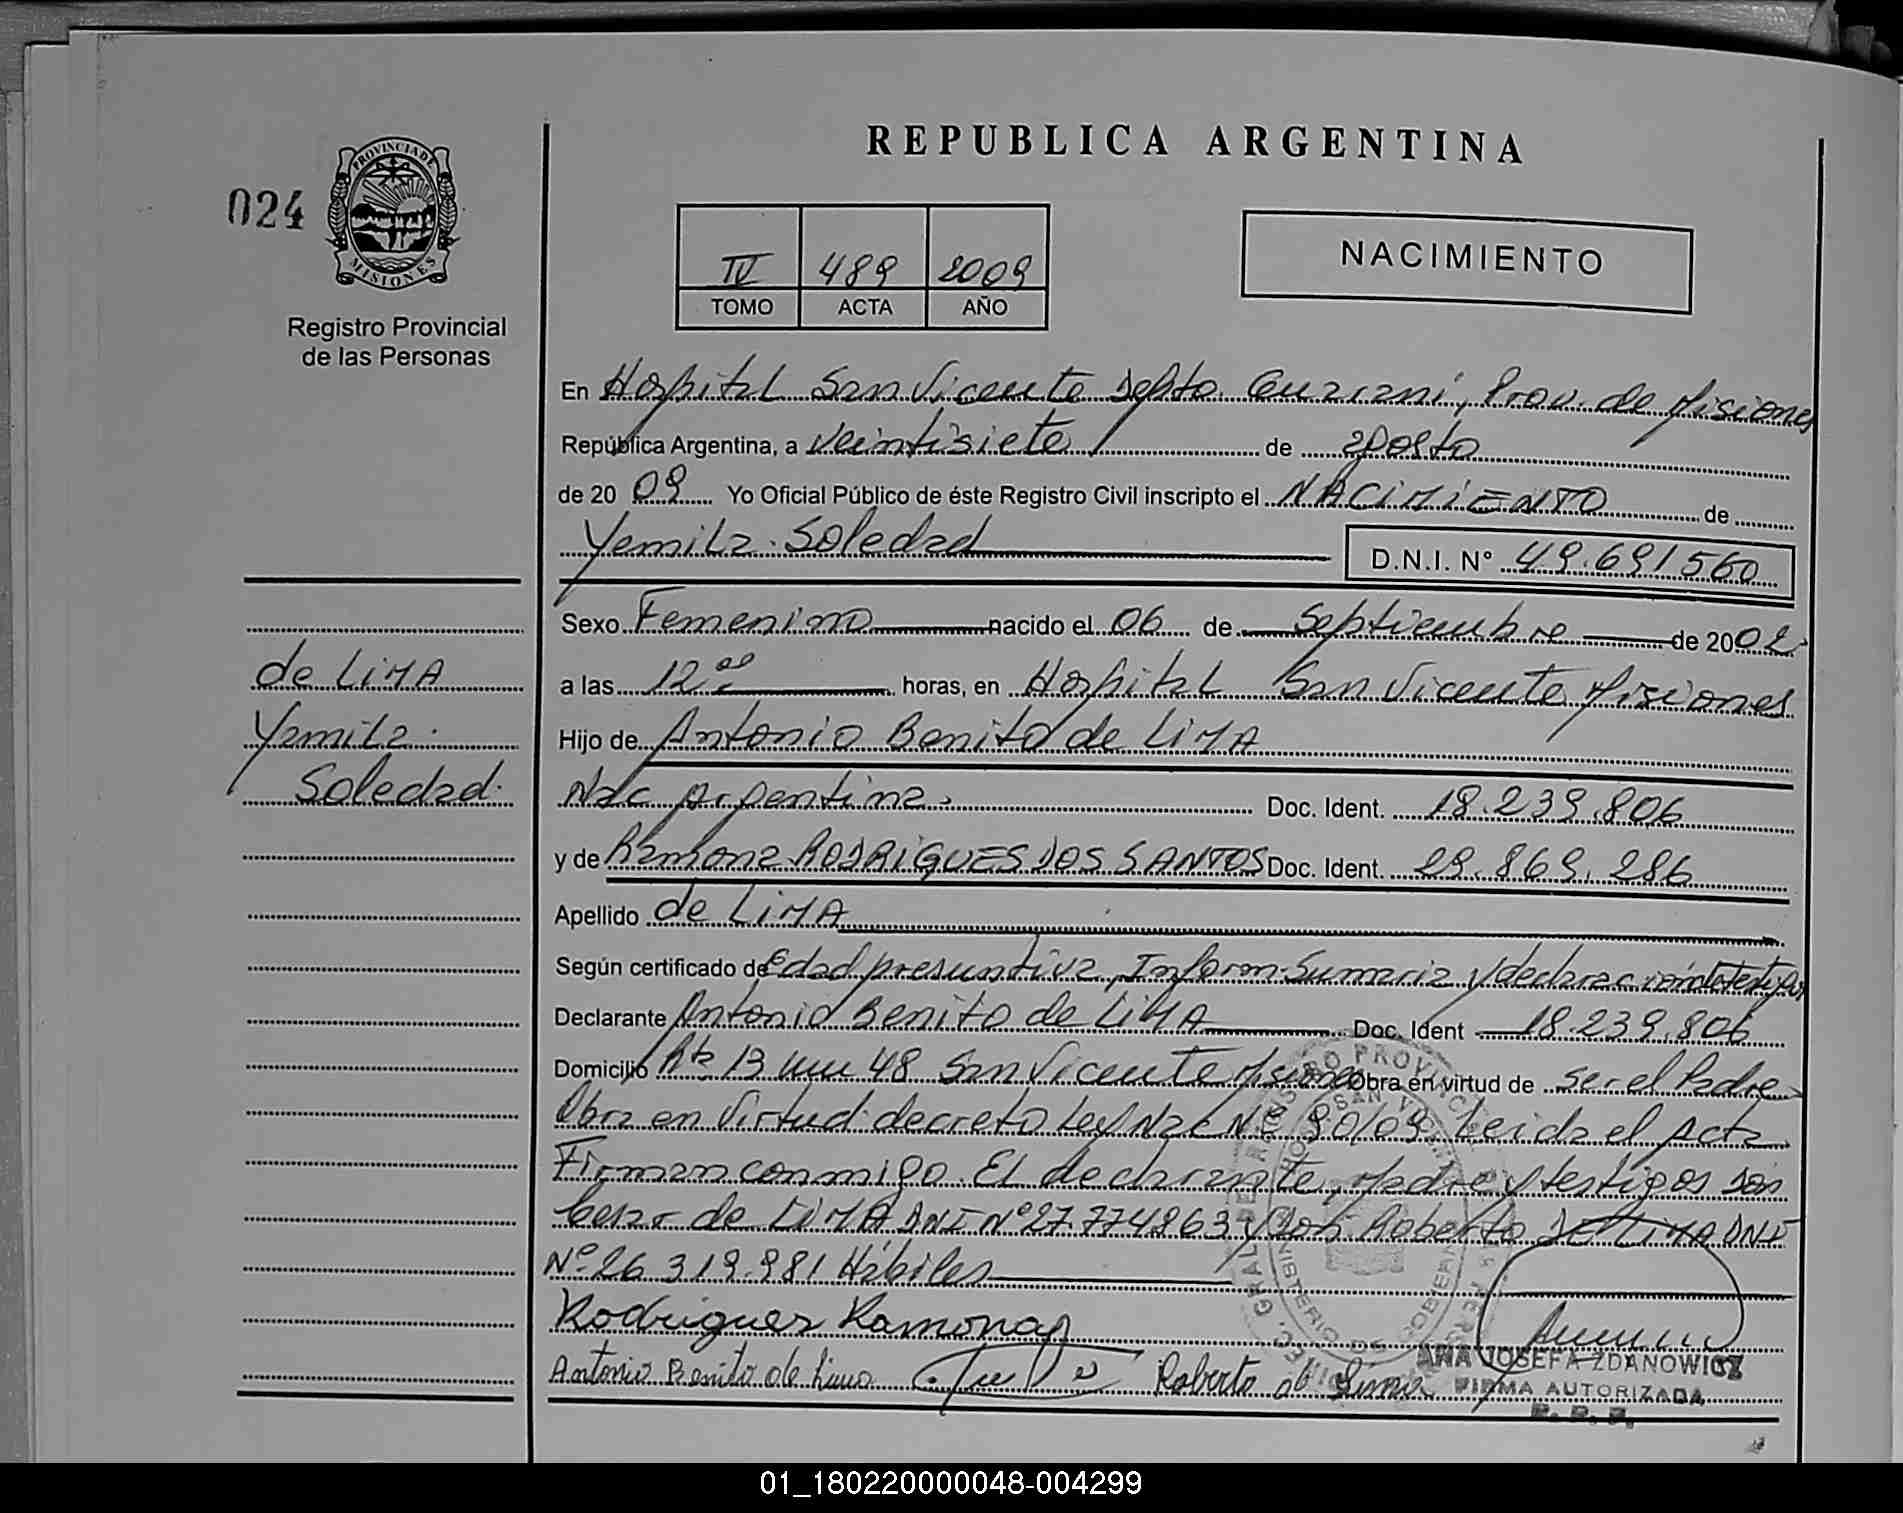 REPUBLICA ARGENTINA
024
PROVINCIA DE MISIONES
Registro Provincial
de las Personas
IV 489 2009
TOMO ACTA AÑO
NACIMIENTO
En Hospital San Vicente Depto. Guarani, Prov. de Misiones
República Argentina, a veintisiete de agosto
de 2009 Yo Oficial Público de éste Registro Civil inscripto el NACIMIENTO de
Yamila Soledad
D.N.I. N° 49.691560
Sexo Femenino nacido el 06 de Septiembre de 2002
de LIMA
Yamila
Soledad
a las 12 horas, en Hospital San Vicente Misiones
Hijo de Antonio Benito de LIMA
Nac Argentina. Doc. Ident. 18.239.806
y de Ramona RODRIGUES DOS SANTOS Doc. Ident. 29.869.286
Apellido de LIMA
Según certificado de Edad presuntiva, Inform. Sumaria y declarac testigos
Declarante Antonio Benito de LIMA Doc. Ident 18.239.806
Domicilio Rta 13 km 48 San Vicente Misiones Obra en virtud de ser el Padre
Obra en Virtud decreto Ley Nac Nº 90/09 Leida el Acta
Firman conmigo. El declarante, Madre y testigos son
Cesar de LIMA DNI Nº 27.774863 y Roberto DE LIMA DNI
Nº 26.319.981 Hábiles
Rodriguez Ramona
Antonio Benito de Lima Roberto de Lima
ANA JOSEFA ZDANOWICZ
FIRMA AUTORIZADA
R. P. P.
01_180220000048-004299